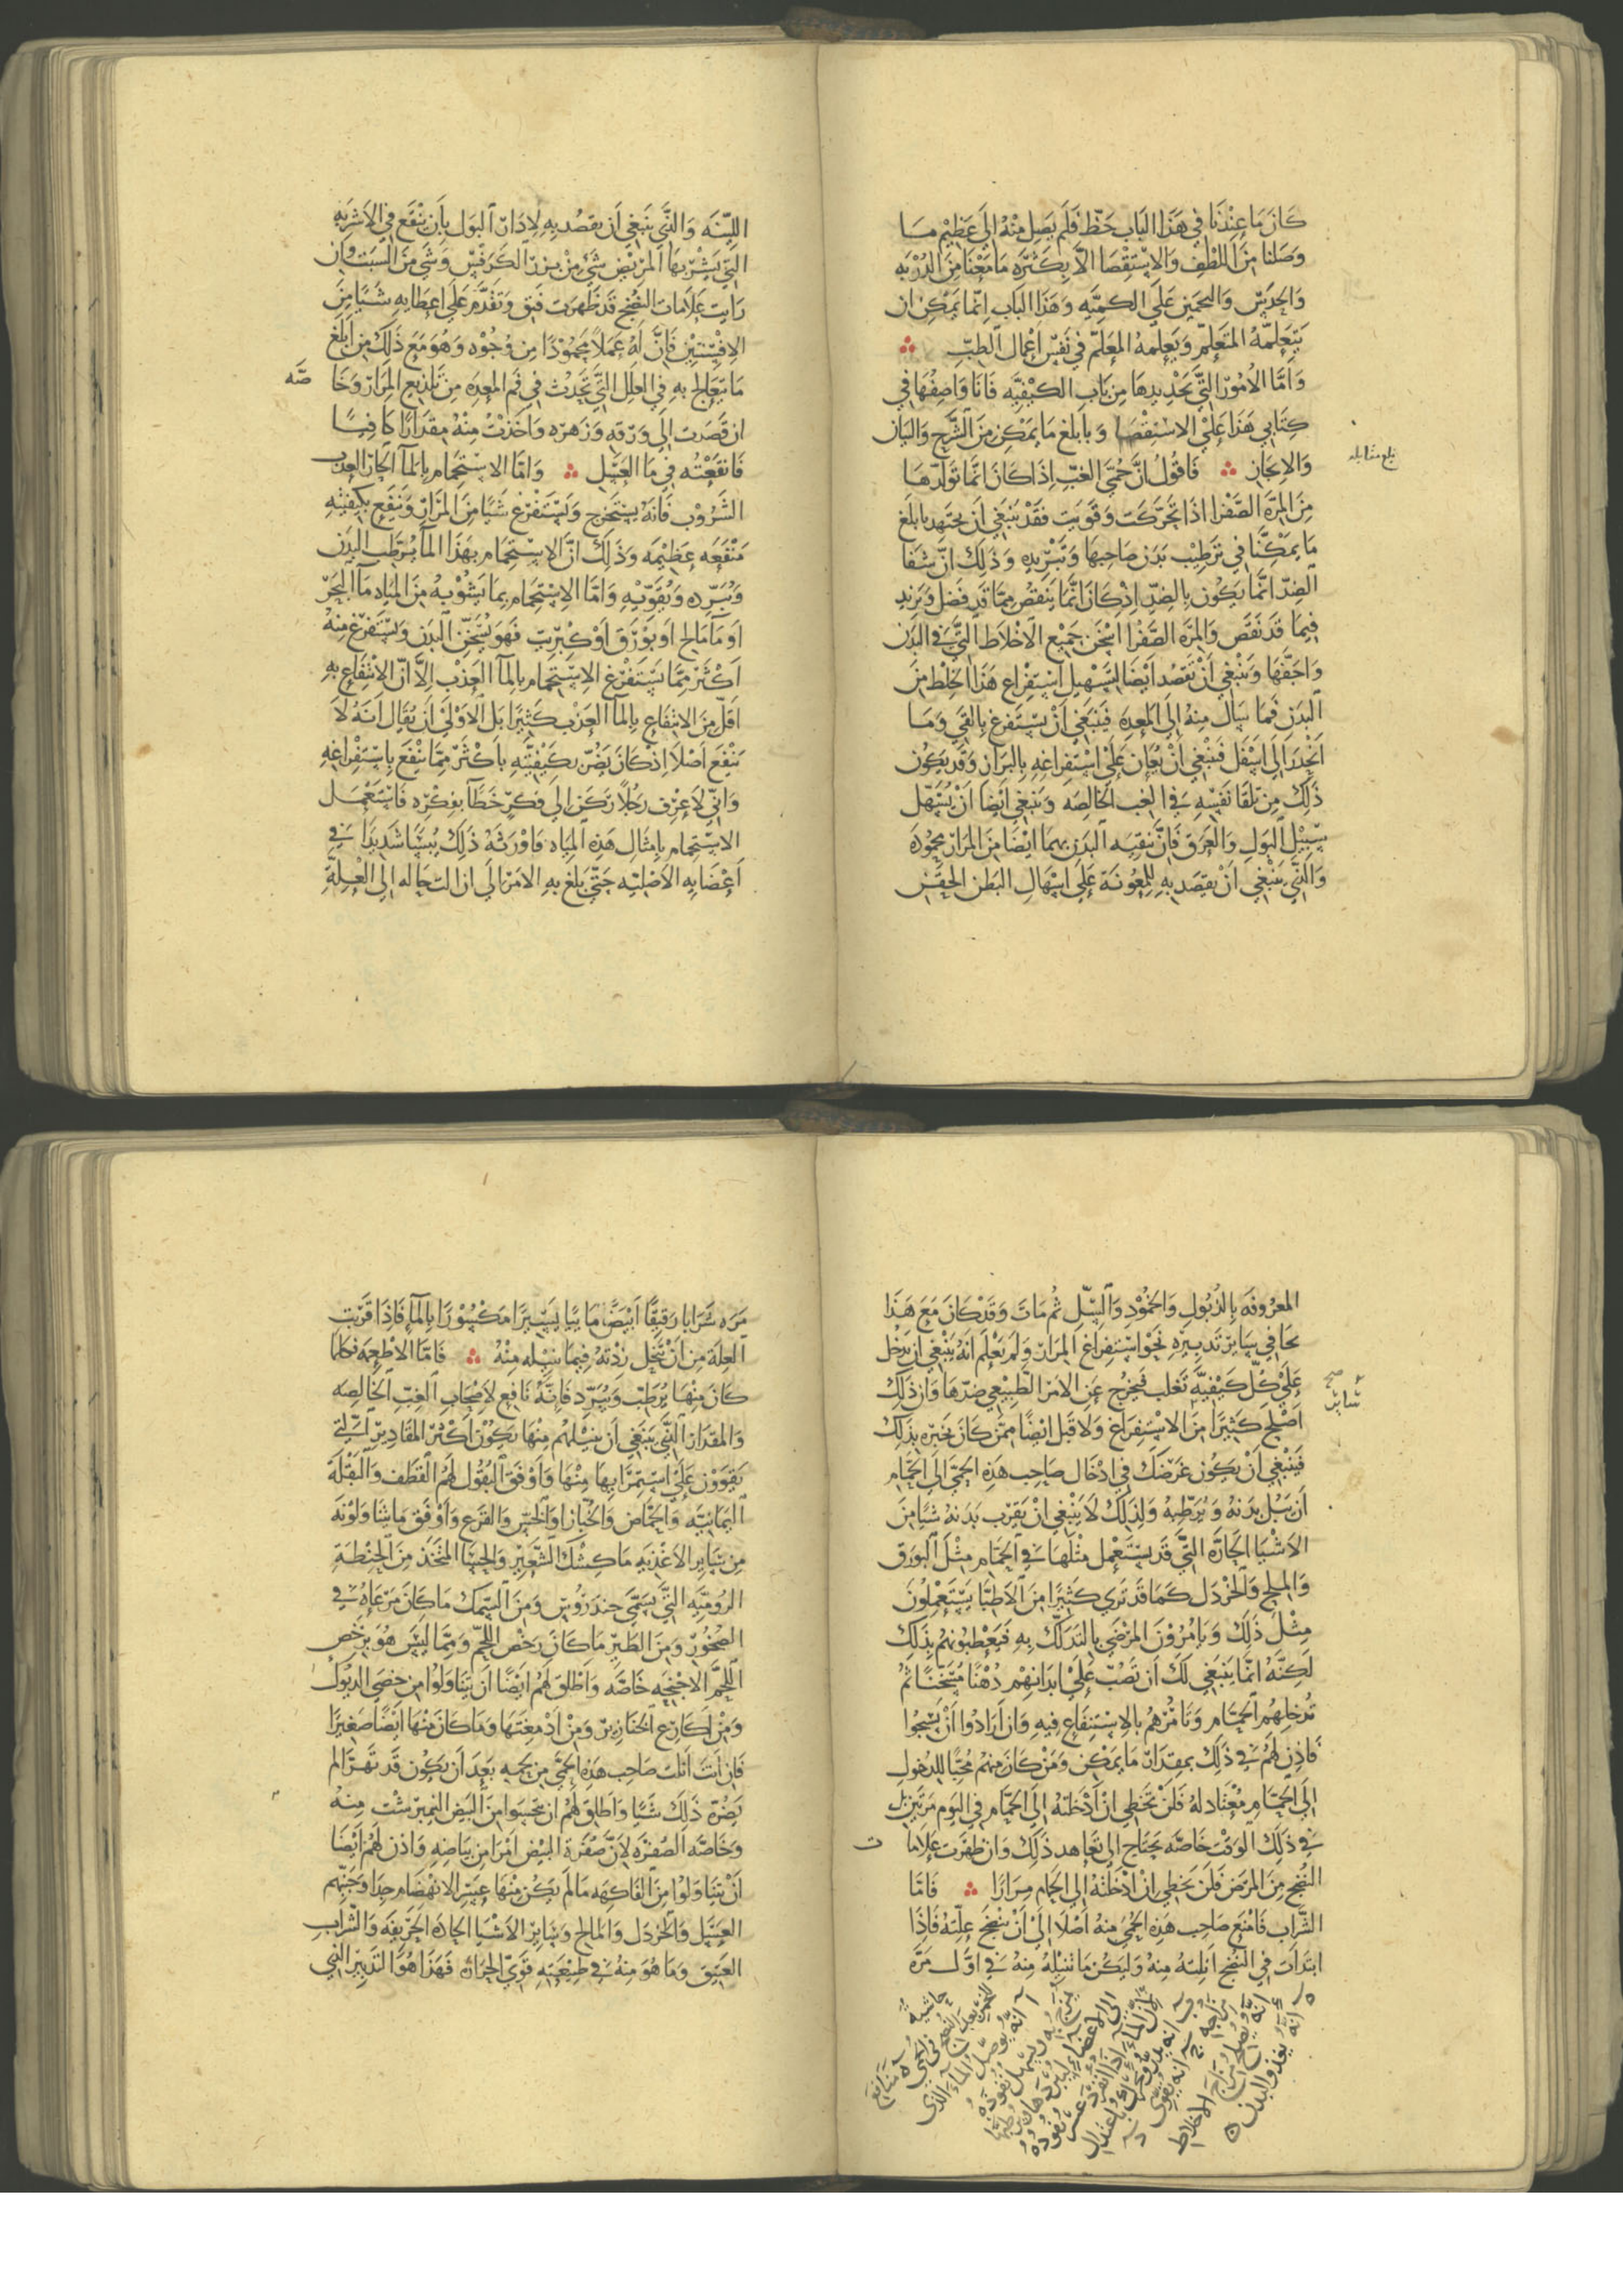 كَانَ مَا عِنْدَنَا فِي هَذَا البَابِ حَظّ فَلَم يَصِل مِنْهُ إلَى عَظِيْم مَا
وَصَلنَا مِنَ اللطْفِ وَالاسْتِقْصَا الاَّ بِكَثْرَه مَا مَعْنَا مِنَ الدُرْبَهِ
وَالحَدَسِ وَالتخمِين عَلَى الكَمِيَّه وَهَذَا البَاب اِنّمَا يمكِن ان
يَتَعَلمَهُ المتَعَلِّم وَيُعَلِمهُ المعَلّم فِي نَفسِ اعْمال الطبِّ
وَامَّا الامُورُ التِّي تَحْدِيدهَا مِن بَابِ الكَيْفِيَّه فَانَا وَاصِفُهَا فِي
كِتَابِي هَذَا عَلَى الاسْتقْصَا وَبابلغ مَا يمكِن مِنَ الشَّرح وَالبَيَان
وَالايجَازِ فَاقُولُ انَّ حُمَّى الغبِّ اِذَا كَانَ انَّمَا تَوَلّدهَا
بلغ مقابله
مِنَ المرَّه الصَّفْرَا اذَا تحرَّكَت وَقَوِيَت فَقَدْ يَنبَغي اَن يجتهِد بابلَغ
مَا يمكِنَّا فِي تَرطِيْب بَدَن صَاحِبهَا وَتَبْرِيدِهِ وَذَلِكَ انَّ شفَا
الضِدّ انَّمَا يَكُون بِالضِدِّ اِذ كَانَ انَّمَا يَنقُصُ مِمَّا قَد فَضَل وَيَزيد
فِيمَا قَد نَقَصَ وَالمرَّه الصَّفْرَا اسْخَن جَمِيْع الاخْلَاط التِّي فِي البَدَن
وَاجَفّهَا وَينْبغي اَنْ تَقصُد اَيْضًا لتَسْهِيل اسْتِفرَاغ هَذَا الخلط مِنَ
البَدَنِ فَمَا سَال مِنهُ الَى المعِدَه فَيَنبَغي اَنْ يُسْتفرَغ بالقَي وَمَا
انحدَرَ الَى اسْفَل فَينْبغي اَنْ يُعَان عَلَى اسْتِفرَاغِهِ بِالبرَاز وَقَد يَكُون
ذَلِكَ مِن تِلقَا نَفسِه فِي الغبِ الخالِصَه وَينْبغي ايْضًا اَنْ يُسَهّل
سَبِيْل البَولِ وَالعَرَق فَانَّ تنقِيَه البَدَن بهِمَا ايْضًا مِنَ المرَار محمُودَه
وَالذِي يَنْبغي اَنْ يقصَد بِهِ للمعُونَة عَلَى اسْهَالِ البَطن الحقَن
اللّيّنَه وَالذِّي يَنبَغي اَن يقصُد بِهِ لِادرَار البَول بِاَن ينْقَع فِي الاشرِبَهِ
التِّي يَشْرَبهَا المرِيْض شَيء مِنْ بِزر الكَرَفسِ وَشَي مِنَ الشبَت وان
رَايتَ عَلَامات النضْج قَد ظَهَرت فَثِق وَتَقَدَّم عَلَى اعطَايِهِ شَيًا مِنَ
الافسنتِيْن فَاِنَّ لَهُ عَمَلًا محمُودًا مِن وُجُوْه وَهُوَ مَعَ ذَلِكَ مِن ابلغِ
مَا يتعَالج بِهِ فِي العِلَل التِّي تَحدُث فِي فَم المعِدَه مِن تلذِيع المِرَار وَخَا
صَّه
ان قَصَدت الَى وَرَقِهِ وَزهره وَاخَذت مِنْهُ مقدَارًا كَافِيًا
فَانقَعْتُه فِي مَا العَسَل وَامَّا الاسْتِحمَام بِالمَآ الحَارّ العَذب
الشَّرُوْب فَانَّهُ يستَخرِج وَيَسْتَفْرغ شَيًا مِنَ المرَار وَينفَع بكيفيتهِ
مَنفَعَه عَظِيْمَه وَذَلِكَ انَّ الاسْتِحمام بهَذَا المآ يُرَطّب البَدَن
وَيُبَرِّده وَيُقَوّيْهِ وَامَّا الاِسْتِحمام بمَا يشُوْبهُ مِنَ المِيَاه مَآ البَحرِ
اَو مَآ مَالح اَو بَورَق اَوْ كِبرِيت فَهَو يُسَخِّن البَدَن وَيَسْتَفرغ مِنهُ
اَكثَر ممَّا يَسْتَفْرغ الاسْتِحمَام بِالمآ العَذْب اِلاَّ انَّ الانْتِفَاع بِهِ
اقَلّ مِنَ الانتِفَاعِ بِالمآ العَذْب كَثِيْرًا بَل الاوْلَى اَن يُقَال اَنَّهُ لَا
يَنفَع اَصْلًا اِذ كَانَ يَضُرّ بكَيْفيّتهِ باكثَر مِمَّا ينْفَع بِاسْتِفرَاغِهِ
وَانّي لَاَعْرِف رَجُلًا رَكَن الَى فِكرٍ خَطَآ بفِكْرِه فَاسْتَعْمَل
الاسْتِحمَام بامثَال هَذِهِ المِيَاه فَاوْرَثَهُ ذَلِكَ يُبسًا شَدِيدًا فِي
اَعْضَايِهِ الاصْليّه حَتّى بَلغ بِهِ الامْر الَى ان الت حاله الى العلَّةِ
المعرُوفَه بِالذُبُول وَالجمُودِ وَالسِّلّ ثُم مَاتَ وَقَدْ كَانَ مَعَ هَذَا
نحَا فِي سَايِر تَدبِيره نَحْوَ اسْتفرَاغ المرَار وَلَم يَعْلَم اَنَهُ يَنْبغي ان يَدخُل
عَلَى كُلّ كَيفيَّةٍ تَغلب فَتخرُج عَنِ الامر الطّبيْعي ضدّهَا وَاَن ذَلِكَ
صح
اَصْلَح كَثِيْرًا مِنَ الاسْتفرَاغ وَلَا قَبِل ايْضًا ممَّن كَانَ يخبِره بِذَلِكَ
فَيَنبغي اَنْ يَكُون غَرَضَكَ فِي ادْخَال صَاحِب هَذِهِ الحمَّى الَى الحَمَّام
اَن تَبُلّ بَدَنهُ وَتُرَطّبهُ وَلِذَلِكَ لَا يَنْبغي اَنْ يَقرَب بَدَنهُ شيًا مِنَ
الاشيَا الحَارَّه التِّي قَد يسْتَعمل مثْلَهَا فِي الحَمّام مِثْل البَورَق
وَالملح وَالخردَل كَمَا قَد نَرى كَثِيْرًا مِنَ الاطِبَّا يَسْتَعمِلُونَ
مِثْلَ ذَلِكَ وَيَامُرُوْنَ المرْضَى بالتَدَلُّك بِهِ فَيعْطبُونهُم بِذَلِكَ
لَكِنَّهُ انمَّا يَنبَغي لَكَ اَن تَصُبّ عَلَى ابدَانهِم دُهْنًا مُسَخَّنًا ثُم
تُدخلهُم الحمَّام وَتَامُرْهُم بالاِسْتِنقَاع فِيهِ وَان اَرَادُوا اَنْ يَسْبحُوا
فَاذَن لَهُم فِي ذَلِكَ بمِقدَار مَا يمْكِن وَمَن كَانَ مِنهُم مُحبًا للدخُولِ
اِلَى الحمّام مُعْتَادا لهُ فَلَنْ تُخطِي انْ اَدْخَلتَهُ الَى الحمَّام فِي اليَوم مَرَّتَيْن
فِي ذَلِكَ الوَقْت خَاصَّه يحتَاج الى تعَاهد ذَلِكَ وَان ظَهَرَت عَلَامَا
ت
النُضْج مِنَ المرَض فَلَن تخطِي انْ ادخَلتهُ الَى الحمام مِرَارًا فَامَّا
الشَّرَاب فَامْنَع صَاحِب هَذِهِ الحُمَّى مِنهُ اَصْلًا اِلَى اَنْ يَنضَجَ عِلّتهُ فَاِذَا
ابتَدَات فِي النضْج اَنِلتَهُ مِنهُ وَلتَكُن مَا تُنِيلهُ مِنهُ فِي اَوَّل مَرَّه
مَرَه شَرَابًا رَقيْقًا اَبْيَضَ مَايِيًا يَسِيْرًا مَكْسُوْرًا بِالمآ فَاِذَا قَرُبَت
العِلّه مِن اَنْ تَنحَل زِدْتهُ فِيمَا تُنِيْله مِنْهُ فَامَّا الاطْعِمَه فكلمَا
كَانَ مِنْهَا يُرَطِّب وَيُبَرِّد فَاِنَّهُ نَافِع لاَصْحَابِ الغبِّ الخَالِصَه
وَالمقدَار الذِّي يَنبَغي اَن يُنِيْلهُم مِنهَا يَكُوْن اَكْثَر المقَادِيْرِ التِّي
يَقوَوْن عَلَى اسْتِمرَايهَا مِنْهَا وَاَوْفَق البُقُول لهُم القَطَف وَالبَقْلَة
اليَمَانِيَّه وَالحمّاض وَالخبَّازا وَالخَسّ وَالقَرع وَاَوْفَق مَا يتنَاوَلُونَه
مِن سَايِر الاغْذِيَه مَا كِشْك الشَّعِيْر وَالحسَا المتّخَذ مِنَ الحِنْطَه
الرُومِيَّهِ التِّي يُسَمَّى خندَرُوْس وَمِنَ السَّمَك مَا كَانَ مَرْعَاهُ فِي
الصُخوْر وَمِنَ الطَيْر مَا كَانَ رَخْص اللحْم وَمِمَّا لَيْسَ هُوَ برَخْصِ
اللحْم الاجْنِحَه خَاصَّه وَاطلق لَهُم ايْضًا اَن يَتنَاوَلُوا مِن خصَى الديُوك
وَمِن اكَارِع الخنَازِيْر وَمِنْ ادْمِغَتهَا وَمَا كَانَ مِنهَا اَيْضًا صَغِيْرًا
فَاِن اَنتَ انَلت صَاحِب هَذِهِ الحمّى مِن لحمِهِ بَعدَ اَن يَكُون قَد تَهَرّا لم
يَضُرّه ذَلِكَ شَيًا وَاطلق لَهُم اَن يتَحسَوا مِنَ البَيْض النمبرشت مِنهُ
وَخَاصَّه الصُفْرَه لِاَنَّ صُفْرَة البَيْض امْرَا مِن بَيَاضهِ وَاذَن لَهُم ايْضًا
اَنْ يَتنَاوَلُوا مِنَ الفَاكِهَه مَا لَم يَكُن مِنْهَا عَسِر الانْهِضَام جدًا وَجَنّبهم
العسَل وَالخردَل وَالمالح وَسَايِر الاشيَا الحَادّه الحَرِّيفَه وَالشَّرَاب
العَتِيق وَمَا هُوَ مِنهُ فِي طبِيعَتِهِ قَوِيّ الحرَارَه فَهَذَا هُوَ التَدبِير الذِي
حاشيه